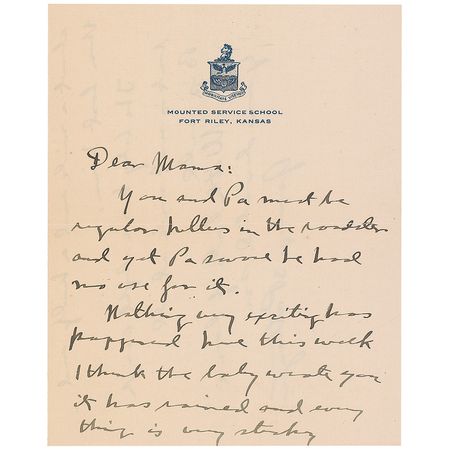 MOUNTED SERVICE SCHOOL
FORT RILEY, KANSAS
Dear Mama:
You and Pa must be
regular fellers in the
and yet Pa swore he had
no use for it.
Nothing very exciting has
happened here this week
I think the baby wrote you
it has rained and every
thing is very sticky